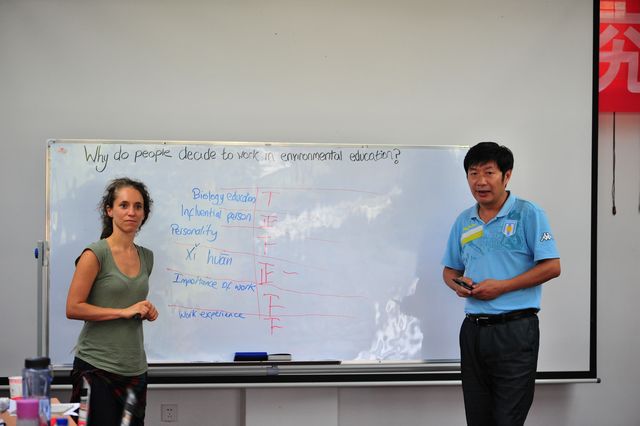 Why do people decide to work in environmental education?
Biology education
Influential person
Personality
Xǐ huan
正 一
Importance of work
Work experience
究